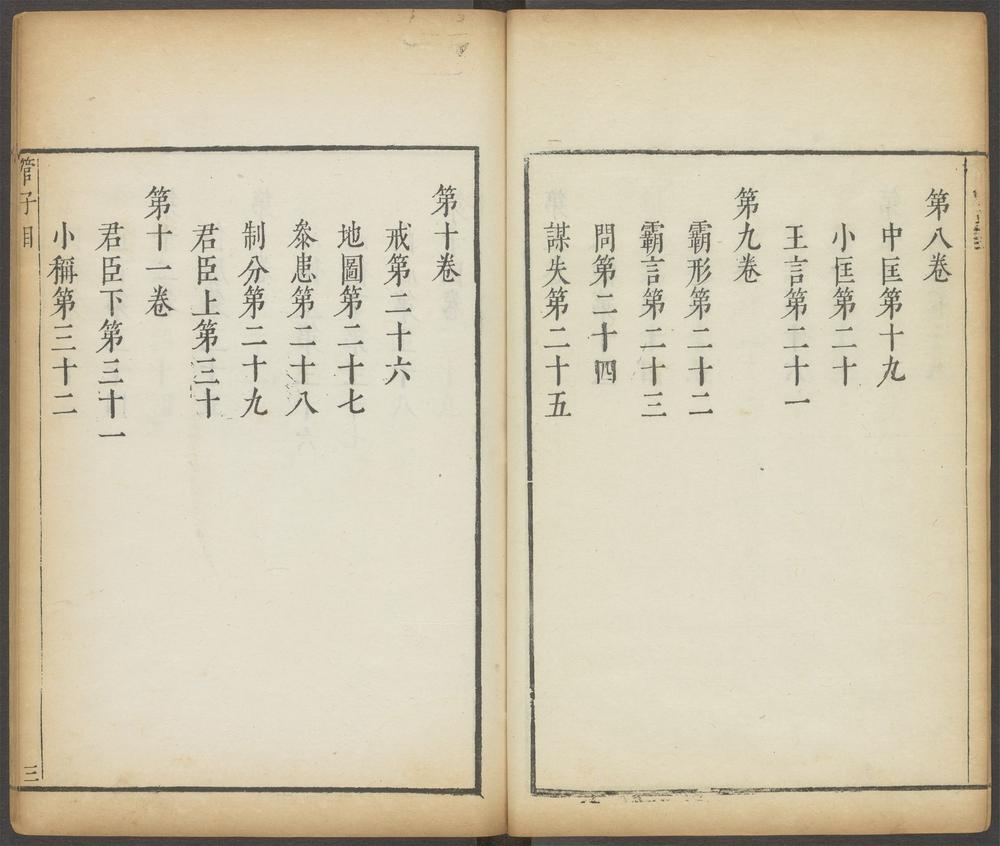 第八卷
中匡第十九
小匡第二十
王言第二十一
第九卷
霸形第二十二
霸言第二十三
問第二十四
謀失第二十五
第十卷
戒第二十六
地圖第二十七
叅患第二十八
制分第二十九
君臣上第三十
第十一卷
君臣下第三十一
小稱第三十二
管子目
三